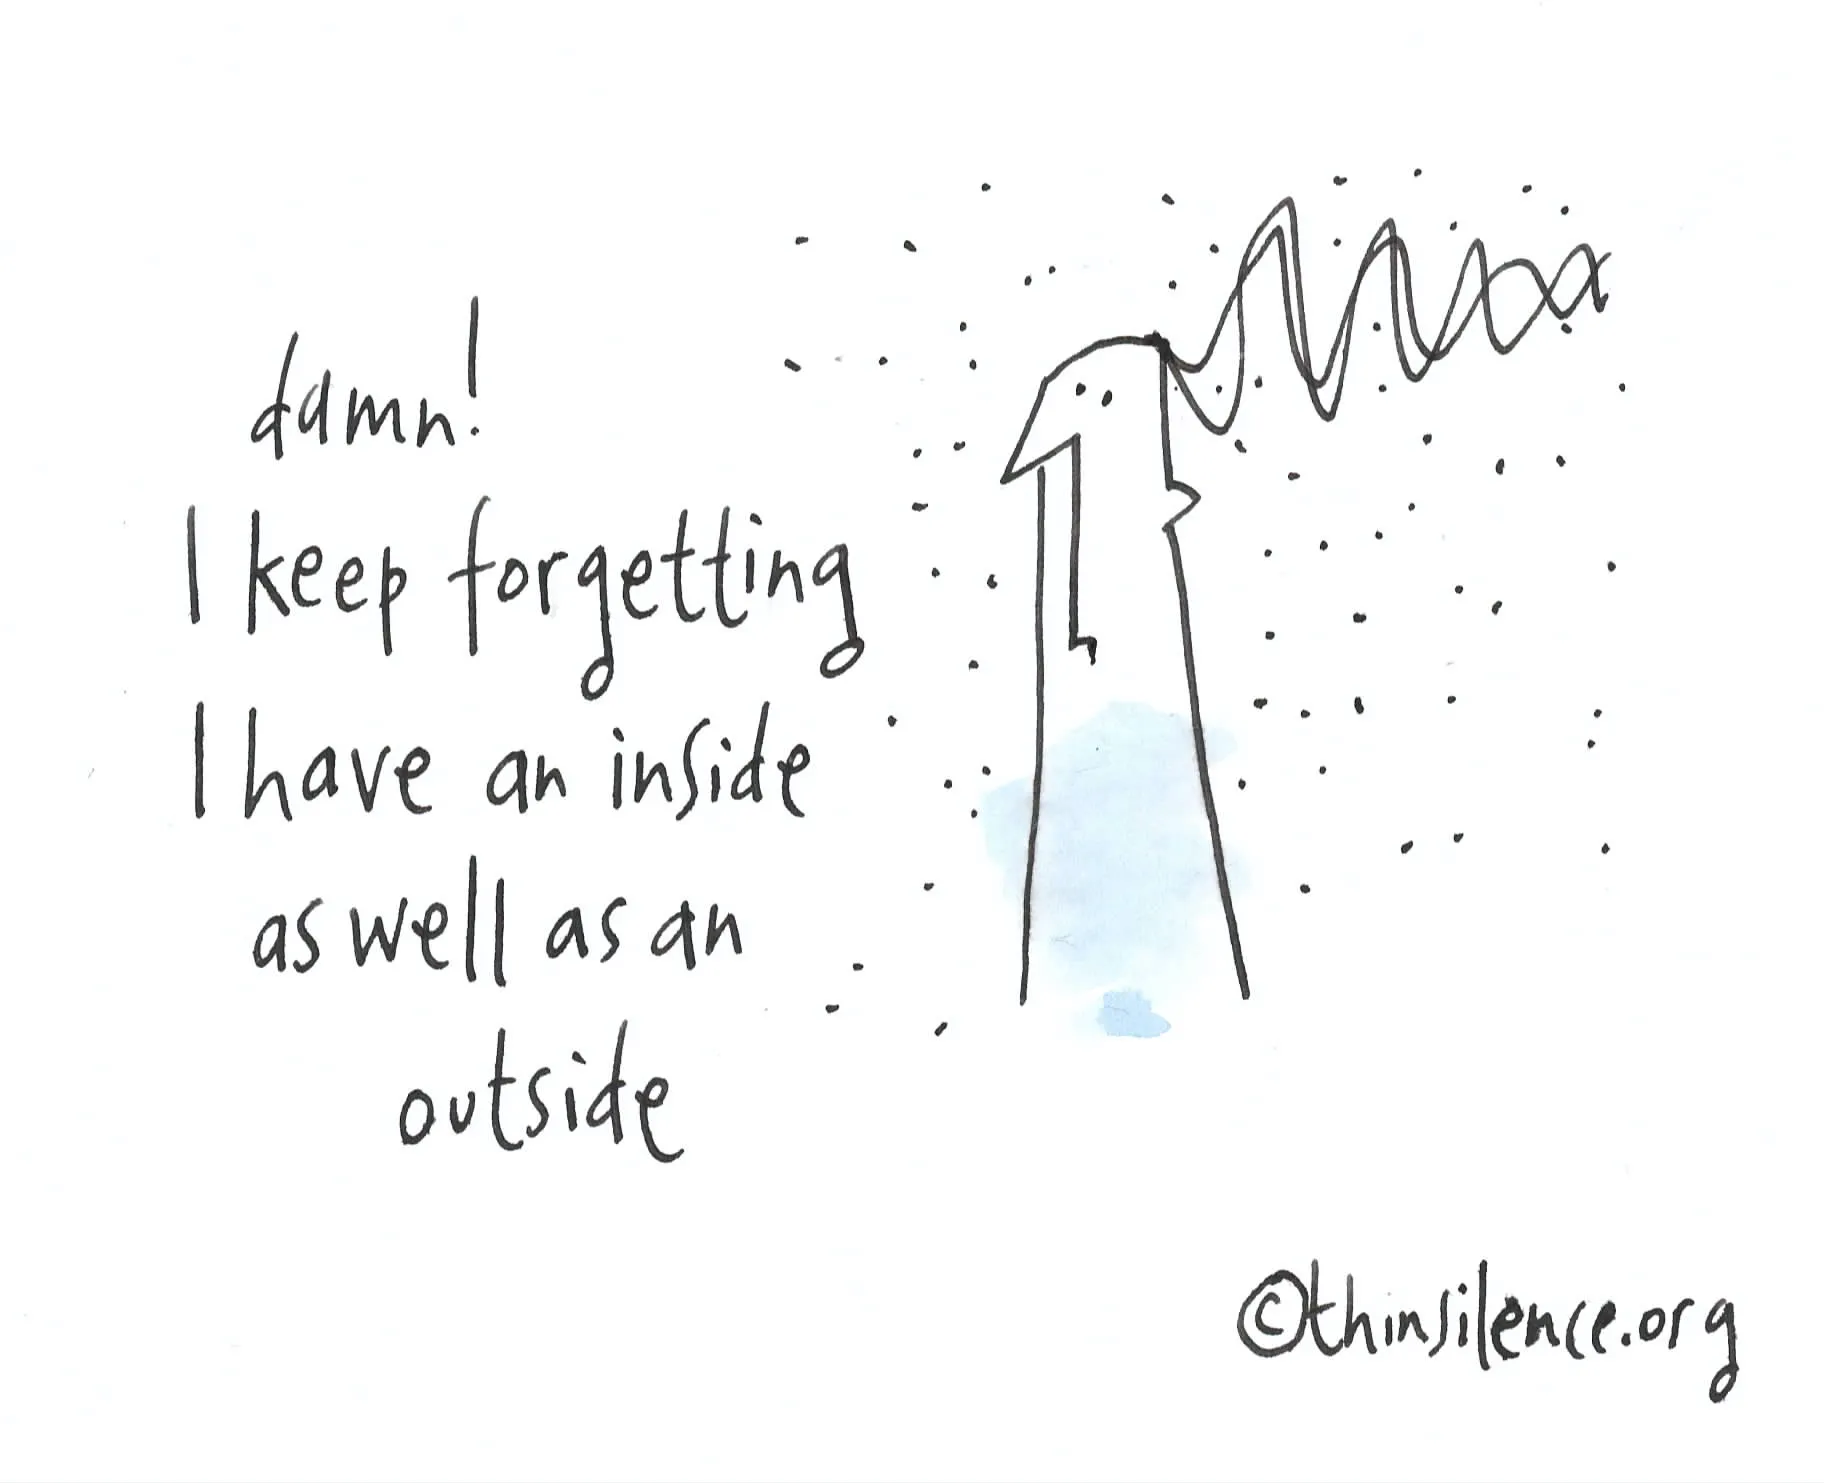 damn!
I keep forgetting
I have an inside
as well as an
outside
©thinsilence.org